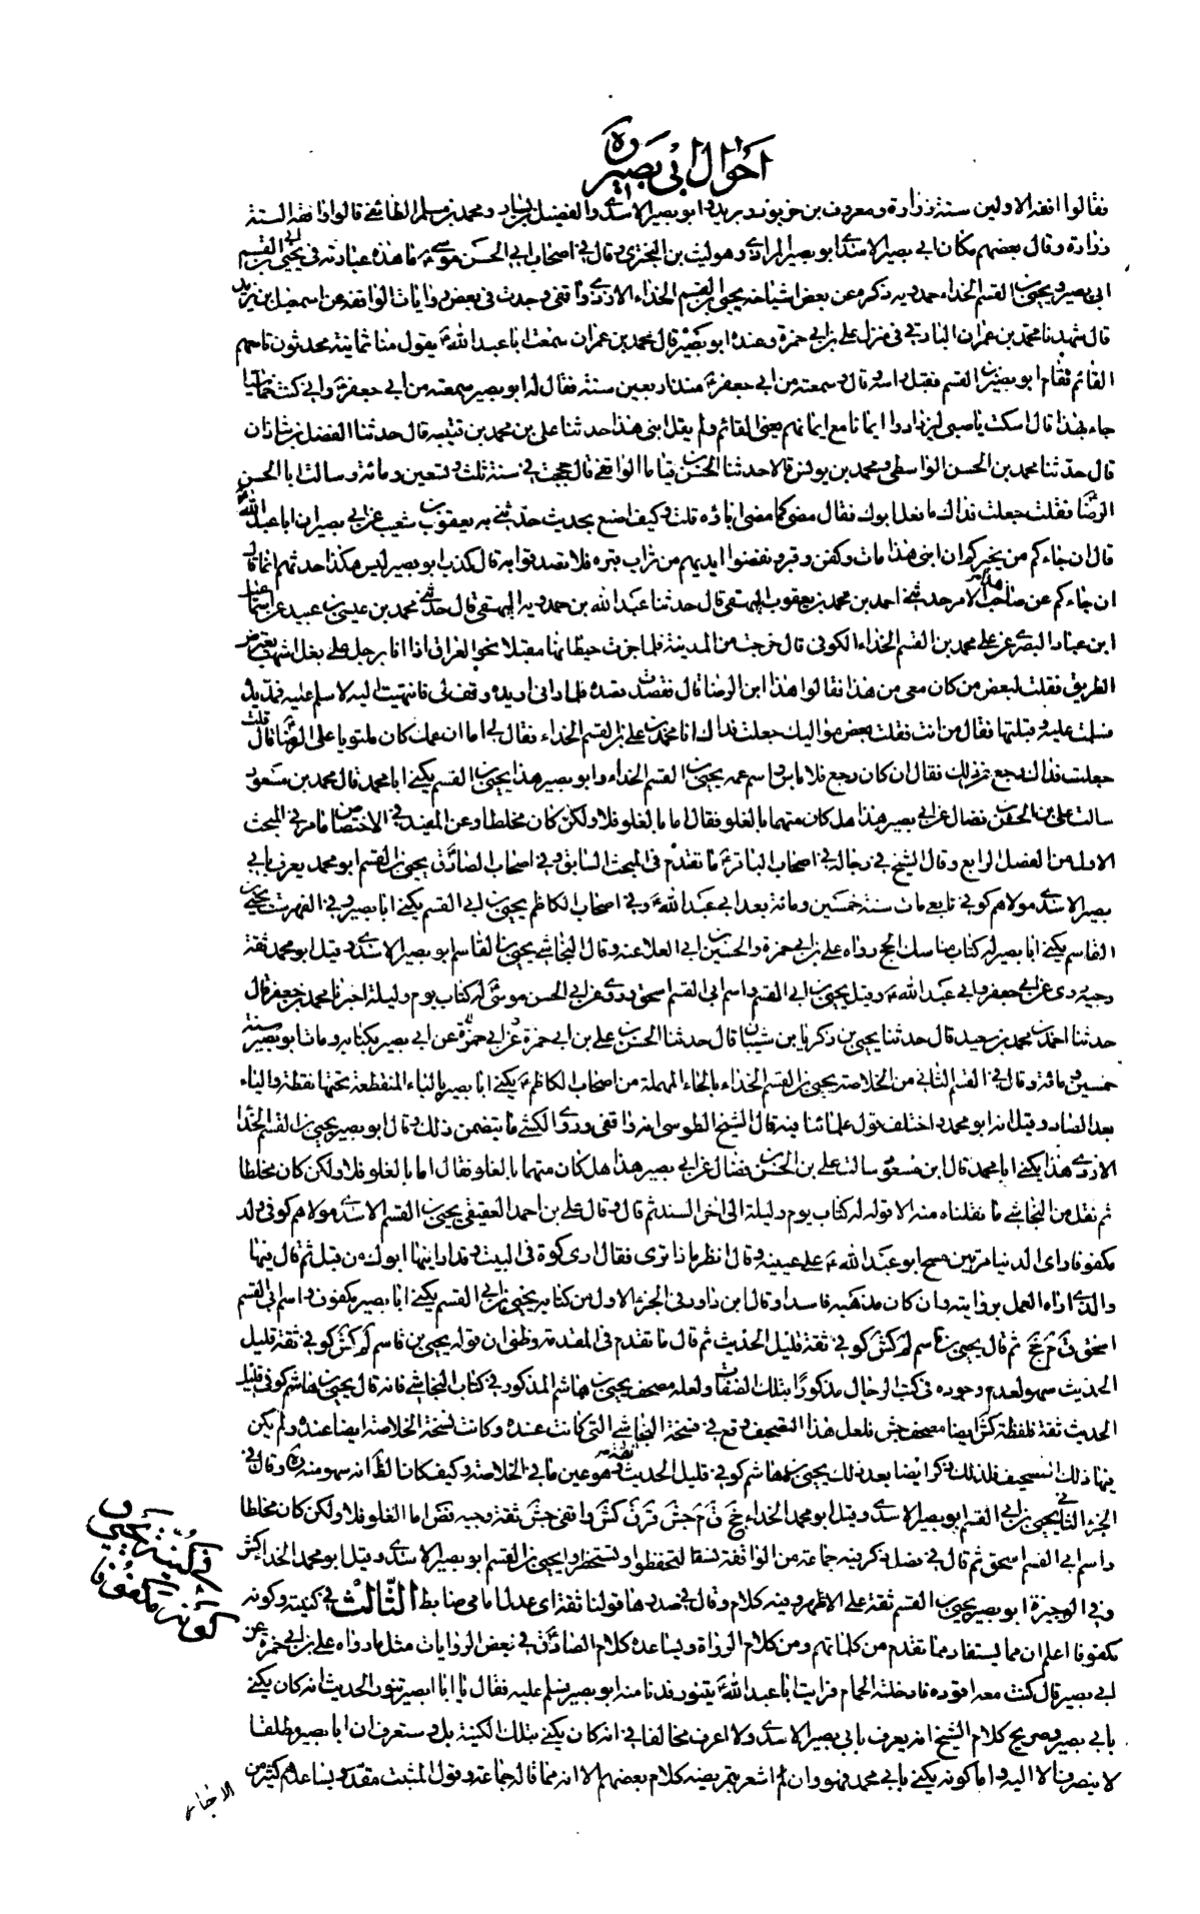 احوال ابي بصير ره
فقالوا افقه الاولين ستة زرارة ومعروف بن خربوذ وبريد وابو بصير الاسدي والفضيل بن يسار ومحمد بن مسلم الطائفي قالوا وافقه الستة
زرارة وقال بعضهم مكان ابي بصير الاسدي ابو بصير المرادي وهو ليث بن البختري وقال في اصحاب ابي الحسن موسى ع ما هذه عبارته في يحيى بن ابي القسم
ابي بصير ويحيى بن القسم الحذاء حمدويه ذكره عن بعض اشياخه يحيى بن القسم الحذاء الازدي واقفي وجدت في بعض روايات الواقفة عن اسمعيل بن يزيد
قال شهدنا محمد بن عمران البارقي في منزل علي بن ابي حمزة وعنده ابو بصير قال محمد بن عمران سمعت ابا عبد الله ع يقول منا ثمانية محدثون تاسعهم
القائم فقام ابو بصير بن القسم فقبل راسه وقال سمعته من ابي جعفر ع منذ اربعين سنة فقال له ابو بصير سمعته من ابي جعفر ع واني كنت خماسيا
جاء بهذا قال اسكت يا صبي ليزدادوا ايمانا مع ايمانهم يعني القائم ولم يقل ابني هذا حدثنا علي بن محمد بن قتيبة قال حدثنا الفضل بن شاذان
قال حدثنا محمد بن الحسن الواسطي ومحمد بن يونس قالا حدثنا الحسن بن قياما الواقفي قال حججت في سنة ثلث وتسعين ومائة وسالت ابا الحسن
الرضا فقلت جعلت فداك ما فعل ابوك فقال مضى كما مضى اباؤه قلت وكيف اصنع بحديث حدثني به يعقوب بن شعيب عن ابي بصير ان ابا عبد الله ع
قال ان جاءكم من يخبركم ان ابني هذا مات وكفن وقبر ونفضوا ايديهم من تراب قبره فلا تصدقوا به قال كذب ابو بصير ليس هكذا حدثهم انما قال
ان جاءكم عن صاحب هذا الامر حدثني احمد بن محمد بن يعقوب البيهقي قال حدثنا عبد الله بن حمدويه البيهقي قال حدثني محمد بن عيسى بن عبيد عن اسماعيل
ابن عباد البصري عن علي بن محمد بن القسم الحذاء الكوفي قال خرجت من المدينة فلما جزت حيطانها مقبلا نحو العراق اذا انا برجل على بغل اشهب يعترض
الطريق فقلت لبعض من كان معي من هذا فقالوا هذا ابن الرضا قال فقصدت قصده فلما راني اريده وقف لي فانتهيت اليه لاسلم عليه فمد يده
فسلمت عليه وقبلتها فقال من انت فقلت بعض مواليك جعلت فداك انا محمد بن علي بن القسم الحذاء فقال لي اما ان عمك كان ملتويا على الرضا قال قلت
جعلت فداك رجع عن ذلك فقال ان كان رجع فلا باس واسم عمه يحيى بن القسم الحذاء وابو بصير هذا يحيى بن القسم يكنى ابا محمد قال محمد بن مسعود
سالت علي بن الحسن بن فضال عن ابي بصير هذا هل كان متهما بالغلو فقال اما بالغلو فلا ولكن كان مخلطا وعن المفيد في الاختصاص ما مر في المبحث
الاول من الفصل الرابع وقال الشيخ في رجاله في اصحاب الباقر ع ما تقدم في المبحث السابق وفي اصحاب الصادق يحيى بن القسم ابو محمد يعرف بابي
بصير الاسدي مولاهم كوفي تابعي مات سنة خمسين ومائة بعد ابي عبد الله ع وفي اصحاب الكاظم يحيى بن ابي القسم يكنى ابا بصير وفي الفهرست يحيى بن
القاسم يكنى ابا بصير له كتاب مناسك الحج رواه علي بن ابي حمزة والحسين بن ابي العلا عنه وقال النجاشي يحيى بن القاسم ابو بصير الاسدي وقيل ابو محمد ثقة
وجيه روى عن ابي جعفر وابي عبد الله ع وقيل يحيى بن ابي القسم واسم ابي القسم اسحق وروى عن ابي الحسن موسى ع له كتاب يوم وليلة اخبرنا محمد بن جعفر قال
حدثنا احمد بن محمد بن سعيد قال حدثنا يحيى بن زكريا بن شيبان قال حدثنا الحسن بن علي بن ابي حمزة عن ابي حمزة عن ابي بصير بكتابه ومات ابو بصير سنة
خمسين ومائة وقال في القسم الثاني من الخلاصة يحيى بن القسم الحذاء بالحاء المهملة من اصحاب الكاظم ع يكنى ابا بصير بالباء المنقطة تحتها نقطة والياء
بعد الصاد وقيل انه ابو محمد واختلف قول علمائنا فيه قال الشيخ الطوسي انه واقفي وروى الكشي ما يتضمن ذلك وقال ابو بصير يحيى بن القسم الحذا
الازدي هذا يكنى ابا محمد قال ابن مسعود سالت علي بن الحسن بن فضال عن ابي بصير هذا هل كان متهما بالغلو فقال اما بالغلو فلا ولكن كان مخلطا
ثم نقل من النجاشي ما نقلناه منه الا قوله له كتاب يوم وليلة الى اخر السند ثم قال وقال علي بن احمد العقيقي يحيى بن القسم الاسدي مولاهم كوفي ولد
مكفوفا راى الدنيا مرتين مسح ابو عبد الله ع على عينيه وقال انظر ما ذا ترى فقال ارى كوة في البيت وقد ارانيها ابوك من قبل ثم قال فيها
والذي اراه العمل بروايته وان كان مذهبه فاسدا وقال ابن داود في الجزء الاول من كتابه يحيى بن ابي القسم يكنى ابا بصير مكفوف واسم ابي القسم
اسحق ق م جخ ثم قال يحيى بن قاسم لم كش كوفي ثقة قليل الحديث ثم قال ما تقدم في المقدمة وظني ان قوله يحيى بن قاسم لم كش كوفي ثقة قليل
الحديث سهو لعدم وجوده في كتب الرجال مذكورا بتلك الصفات ولعله مصحف يحيى بن هاشم المذكور في كتاب النجاشي فانه قال يحيى بن هاشم كوفي قليل
الحديث ثقة فلفظة كش ايضا مصحف جش فلعل هذا التصحيف وقع في نسخة النجاشي التي كانت عنده وكانت نسخة الخلاصة ايضا عنده ولم يكن
فيها ذلك التصحيف فلذلك ذكر ايضا بعد ذلك يحيى بن هاشم كوفي قليل الحديث ثقة وهو عين ما في الخلاصة وكيف كان الظ انه سهو منه ره وقال في
الجزء الثاني يحيى بن ابي القسم ابو بصير الاسدي وقيل ابو محمد الحذاء جخ ق م جش قر ق كش واقفي جش ثقة وجيه قض اما الغلو فلا ولكن كان مخلطا
واسم ابي القسم اسحق ثم قال في فصل ذكر فيه جماعة من الواقفة نسقا لتحفظوا وتستحظروا يحيى بن القسم ابو بصير الاسدي وقيل ابو محمد الحذا كش
وفي الوجيزة ابو بصير يحيى بن القسم ثقة على الاظهر وفيه كلام وقال في صدرها قولنا ثقة اي عدل امامي ضابط الثالث في كنيته وكونه
مكفوفا اعلم ان مما يستفاد مما تقدم من كلماتهم ومن كلام الرواة ويساعده كلام الصادق في بعض الروايات مثل ما رواه علي بن ابي حمزة عن
ابي بصير قال كنت معه اقوده فادخلته الحمام فرايت ابا عبد الله ع يتنور فدنا منه ابو بصير فسلم عليه فقال يا ابا بصير تنور الحديث انه كان يكنى
بابي بصير وصريح كلام الشيخ انه يعرف بابي بصير الاسدي ولا اعرف مخالفا في انه كان يكنى بتلك الكنية بل وستعرف ان ابا بصير مطلقا
لا ينصرف الا اليه واما كونه يكنى بابي محمد فهو وان لم اشعر بتمريضه كلام بعضهم الا انه مما قاله جماعة وقول المثبت مقدم ويساعدهم كثير من
الاخبار
في كنية يحيى و
كونه مكفوفا